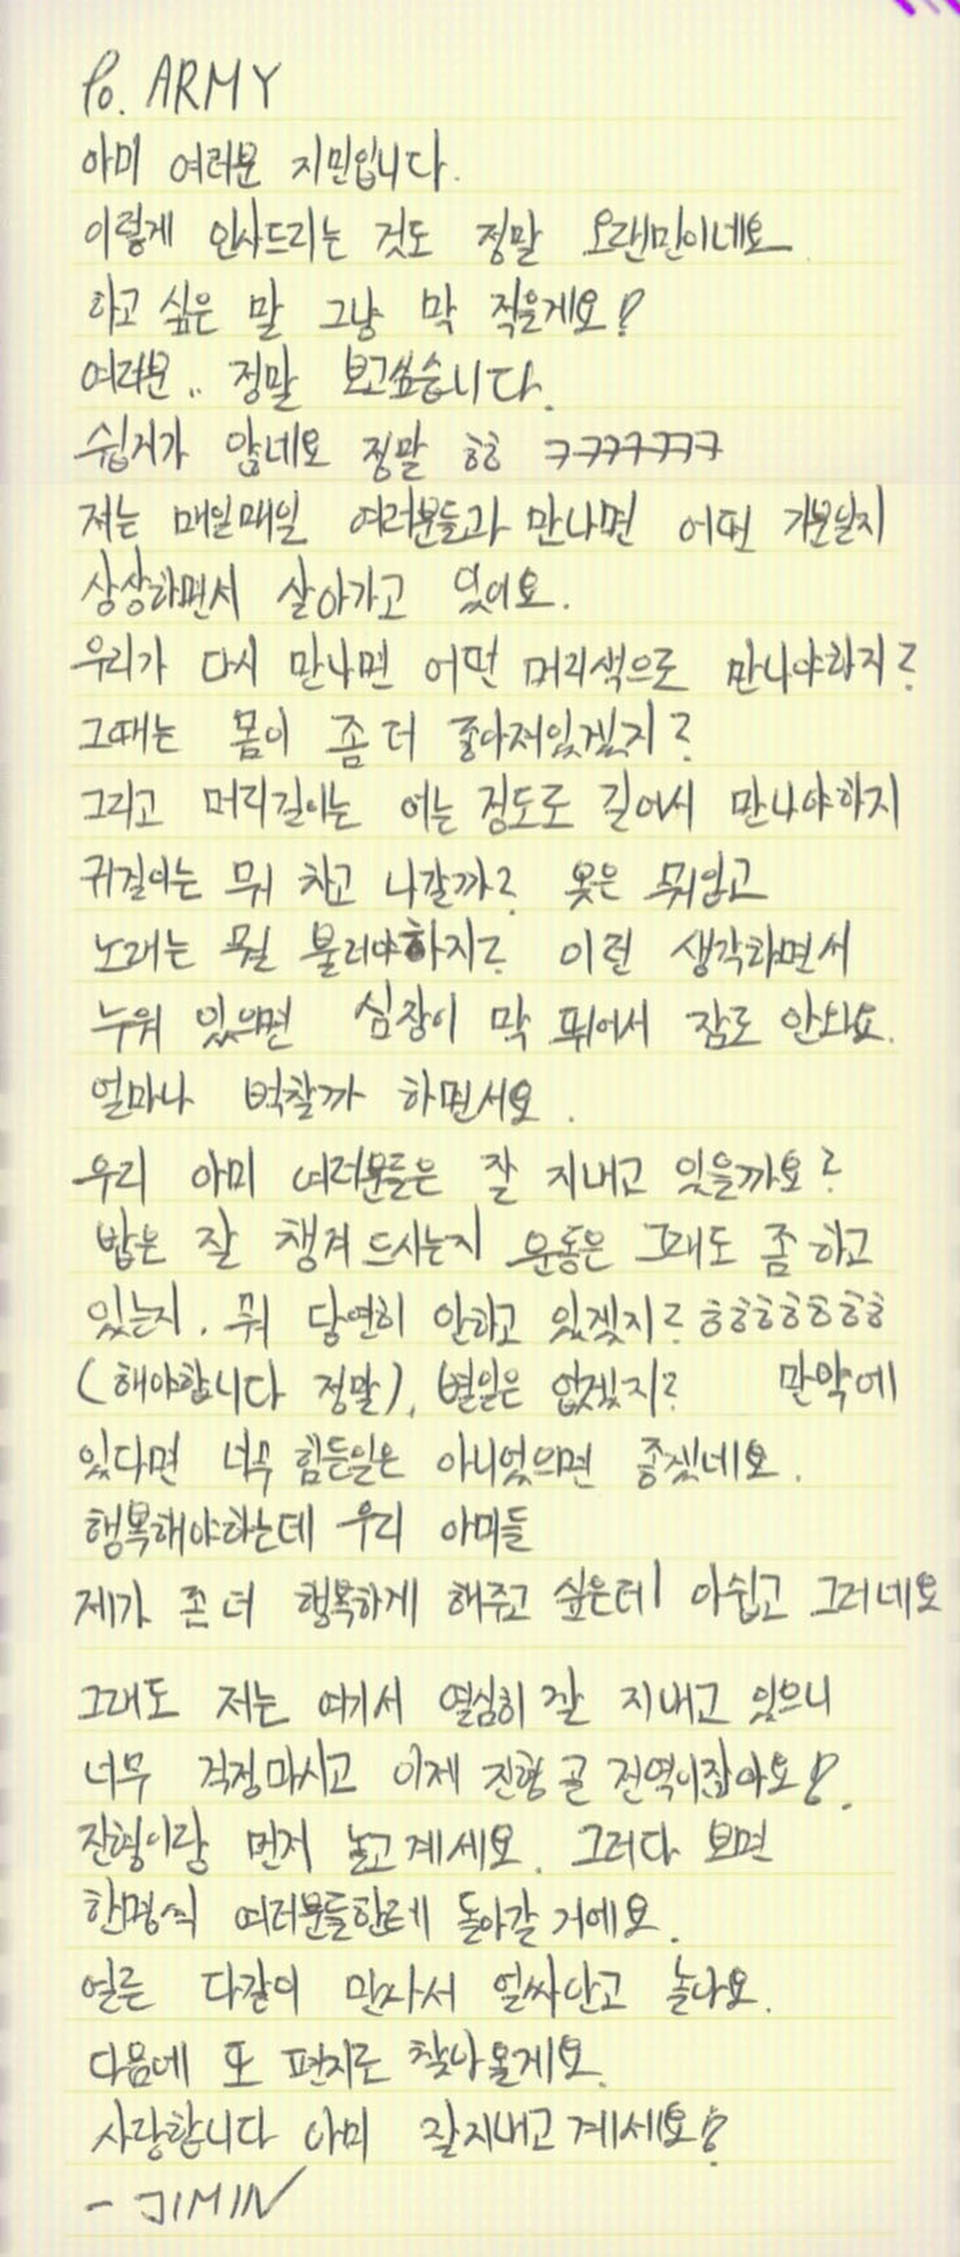 To. ARMY
아미 여러분 지민입니다.
이렇게 인사드리는 것도 정말 오랜만이네요.
하고 싶은 말 그냥 막 적을게요!
여러분.. 정말 보고싶습니다.
쉽지가 않네요 정말 ㅎㅎ ㅋㅋㅋㅋㅋㅋㅋ
저는 매일매일 여러분들과 만나면 어떤 기분일지
상상하면서 살아가고 있어요.
우리가 다시 만나면 어떤 머리색으로 만나야하지?
그때는 몸이 좀 더 좋아져있겠지?
그리고 머리길이는 어느정도로 길어서 만나야하지
귀걸이는 뭐 차고 나갈까? 옷은 뭐입고
노래는 뭘 불러야하지? 이런 생각하면서
누워 있으면 심장이 막 뛰어서 잠도 안와요.
얼마나 벅찰까 하면서요.
우리 아미 여러분들은 잘 지내고 있을까요?
밥은 잘 챙겨 드시는지 운동은 그래도 좀 하고
있는지. 뭐 당연히 안하고 있겠지? ㅎㅎㅎㅎㅎㅎㅎ
(해야합니다 정말), 별일은 없겠지? 만약에
있다면 너무 힘든일은 아니었으면 좋겠네요.
행복해야하는데 우리 아미들
제가 좀 더 행복하게 해주고 싶은데 아쉽고 그러네요
그래도 저는 여기서 열심히 잘 지내고 있으니
너무 걱정마시고 이제 진형 곧 전역이잖아요!.
진형이랑 먼저 놀고계세요. 그러다 보면
한명씩 여러분들한테 돌아갈 거에요.
얼른 다같이 만나서 얼싸안고 놀아요.
다음에 또 편지로 찾아올게요.
사랑합니다 아미 잘지내고계세요!
- JIMIN